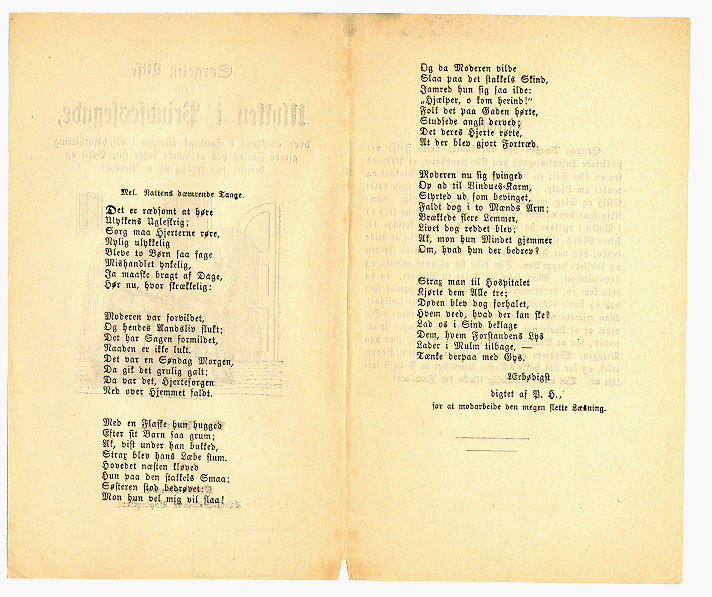 Mel. Nattens dæmrende Taage.
Det er rædsomt at høre
Ulykkens Ugleskrig;
Sorg maa Hjerterne røre,
Nylig ulykkelig
Bleve to Børn saa fage
Mishandlet ynkelig,
Ja maaske bragt af Dage,
Hør nu, hvor skrækkelig:
Moderen var forvildet,
Og hendes Aandsliv slukt;
Det har Sagen formildet,
Naaden er ikke lukt.
Det var en Søndag Morgen,
Da gik det grulig galt;
Da var det, Hjertesorgen
Ned over Hjemmet faldt.
Med en Flaske hun hugged
Efter sit Barn saa grum;
Ak, vist under han bukked,
Strax blev hans Læbe stum.
Hovedet næsten kløved
Hun paa den stakkels Smaa;
Søsteren stod bedrøvet:
Mon hun vel mig vil slaa!
Og da Moderen vilde
Slaa paa det stakkels Skind,
Jamred hun sig saa ilde:
„Hjælper, o kom herind!"
Folk det paa Gaden hørte,
Studsede angst derved;
Det deres Hjerte rørte,
At der blev gjort Fortræd.
Moderen nu sig svinged
Op ad til Vindues-Karm,
Styrted ud som bevinget,
Faldt dog i to Mænds Arm;
Brækkede flere Lemmer,
Livet dog reddet blev;
Ak, mon hun Mindet gjemmer
Om, hvad hun der bedrev?
Strax man til Hospitalet
Kjørte dem Alle tre;
Døden blev dog forhalet,
Hvem veed, hvad der kan ske?
Lad os i Sind beklage
Dem, hvem Forstandens Lys
Lader i Mulm tilbage, —
Tænke derpaa med Gys.
Ærbødigst
digtet af P. H.,
for at modarbeide den megen slette Læsning.